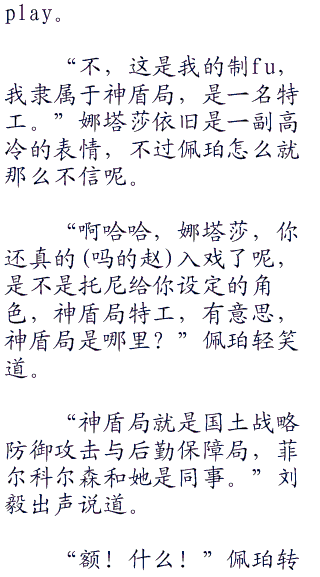 play。
“不，这是我的制fu，
我隶属于神盾局，是一名特
工。”娜塔莎依旧是一副高
冷的表情，不过佩珀怎么就
那么不信呢。
“啊哈哈，娜塔莎，你
还真的(吗的赵)入戏了呢，
是不是托尼给你设定的角
色，神盾局特工，有意思，
神盾局是哪里？”佩珀轻笑
道。
“神盾局就是国土战略
防御攻击与后勤保障局，菲
尔科尔森和她是同事。”刘
毅出声说道。
“额！什么！”佩珀转